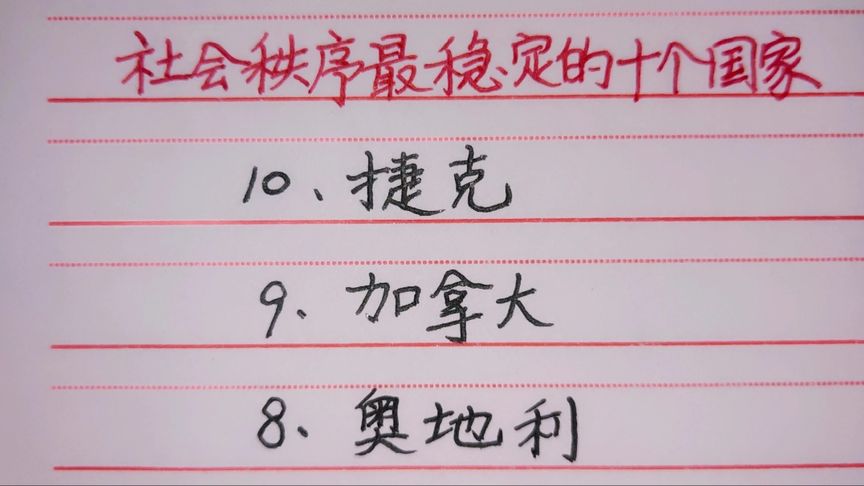 社会秩序最稳定的十个国家
10、捷克
9、加拿大
8、奥地利